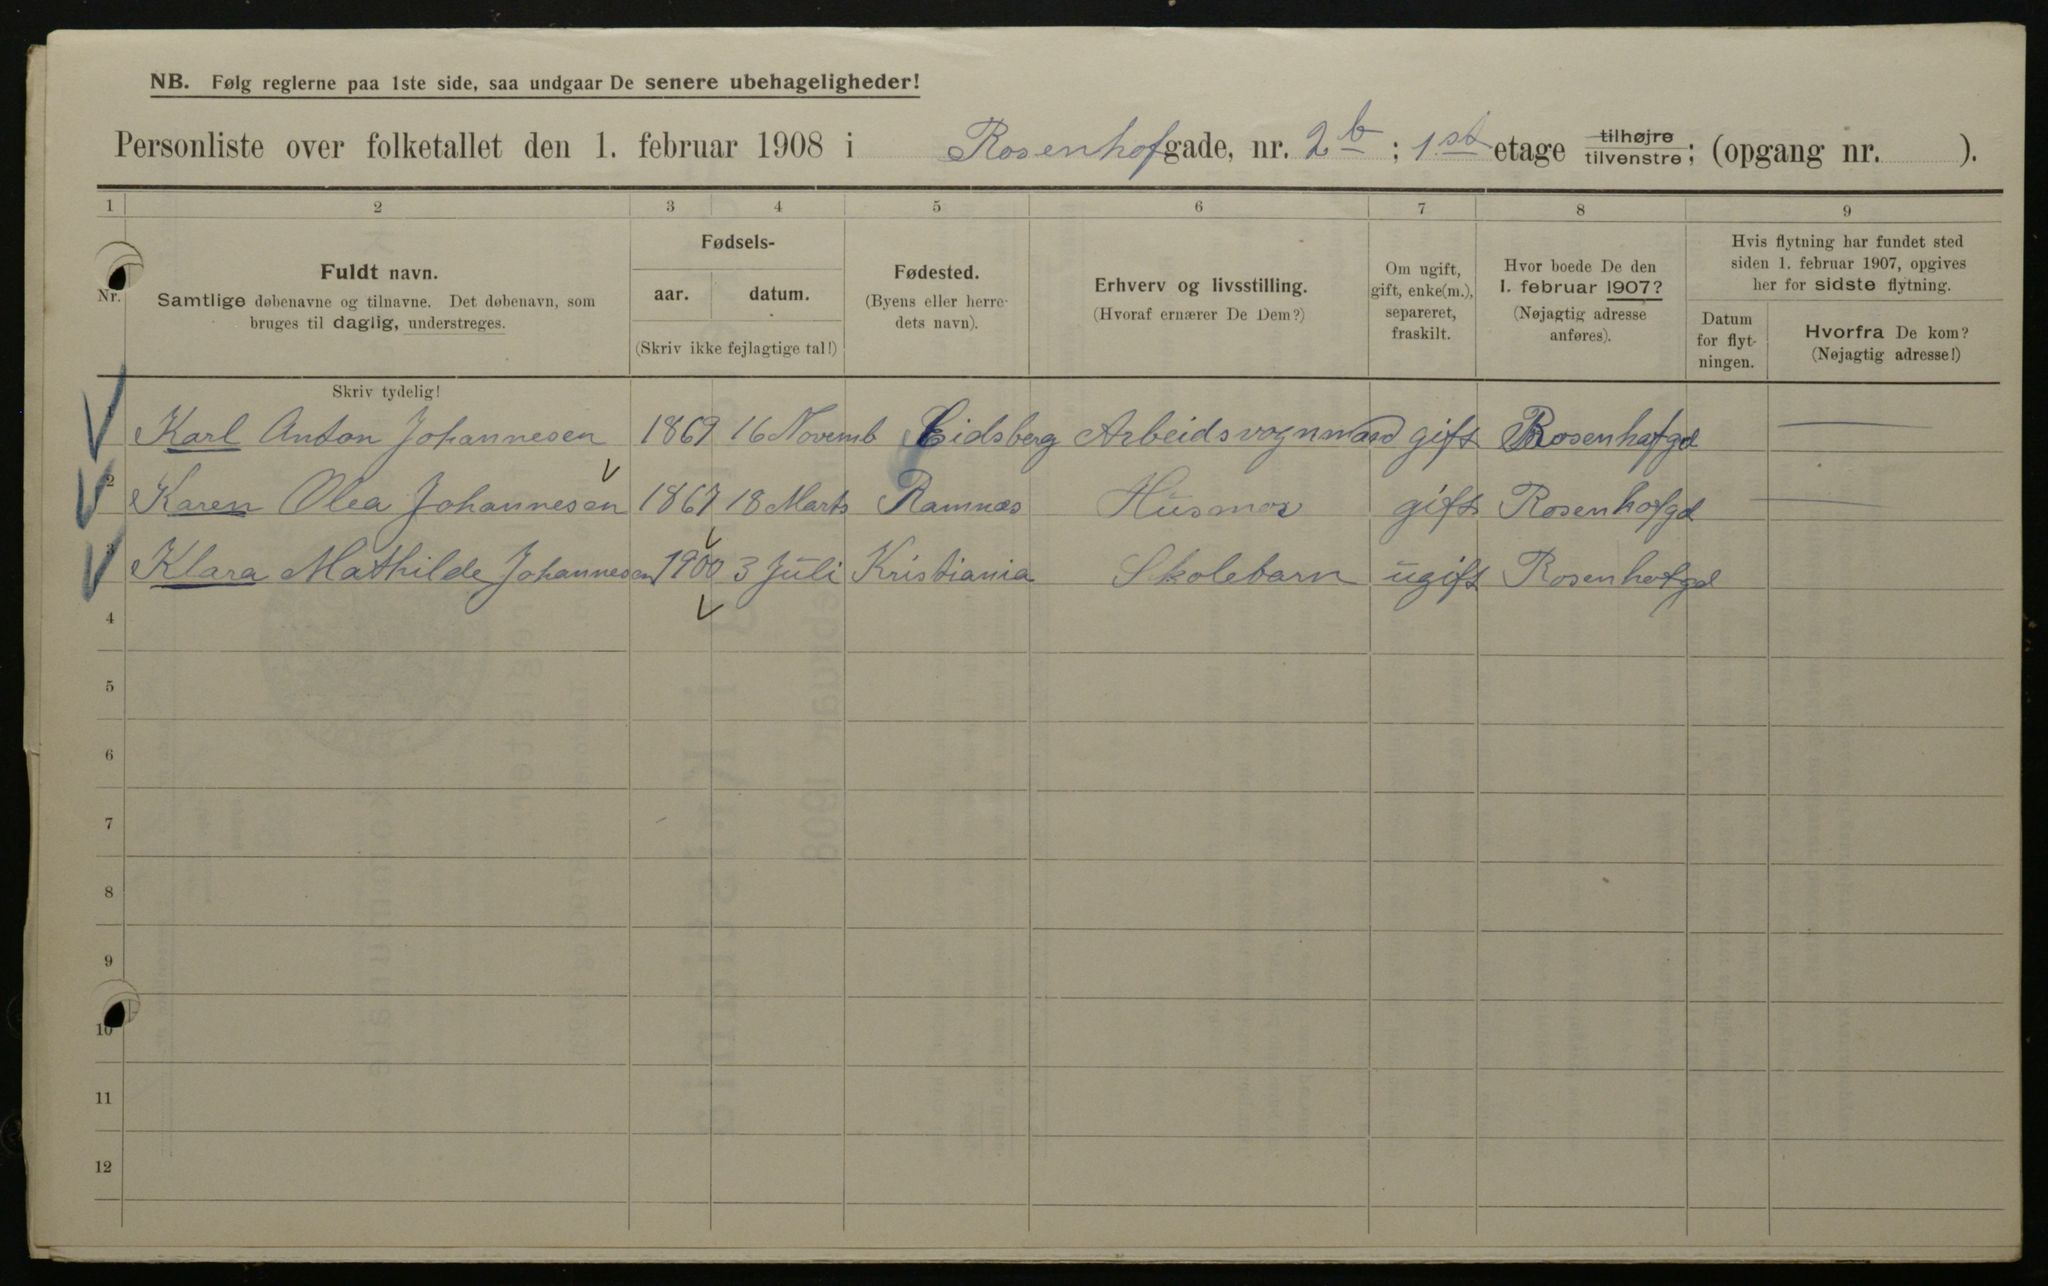 NB. Følg reglerne paa 1ste side, saa undgaar De senere ubehageligheder!
Personliste over folketallet den 1. februar 1908 i Rosenhofgade, nr. 2 b ; 1.ste etage tilhøjre tilvenstre; (opgang nr. ).
1 2 3 4 5 6 7 8 9
Nr.
Fuldt navn.
Samtlige døbenavne og tilnavne. Det døbenavn, som
bruges til daglig, understreges.
Fødsels-
aar. datum.
(Skriv ikke fejlagtige tal!)
Fødested.
(Byens eller herre-
dets navn).
Erhverv og livsstilling.
(Hvoraf ernærer De Dem?)
Om ugift,
gift, enke(m.),
separeret,
fraskilt.
Hvor boede De den
1. februar 1907?
(Nøjagtig adresse
anføres).
Hvis flytning har fundet sted
siden 1. februar 1907, opgives
her for sidste flytning.
Datum
for flyt-
ningen.
Hvorfra De kom?
(Nøjagtig adresse!)
Skriv tydelig!
Karl Anton Johannesen 1869 16 Novemb Eidsberg Arbeidsvognmand gift Rosenhofgd
2 Karen Olea Johannesen 1867 18 Marts Ramnæs Husmor gift Rosenhofgd
3 Klara Mathilde Johannesen 1900 3 Juli Kristiania Skolebarn ugift Rosenhofgd
4
5
6
7
8
9
10
11
12